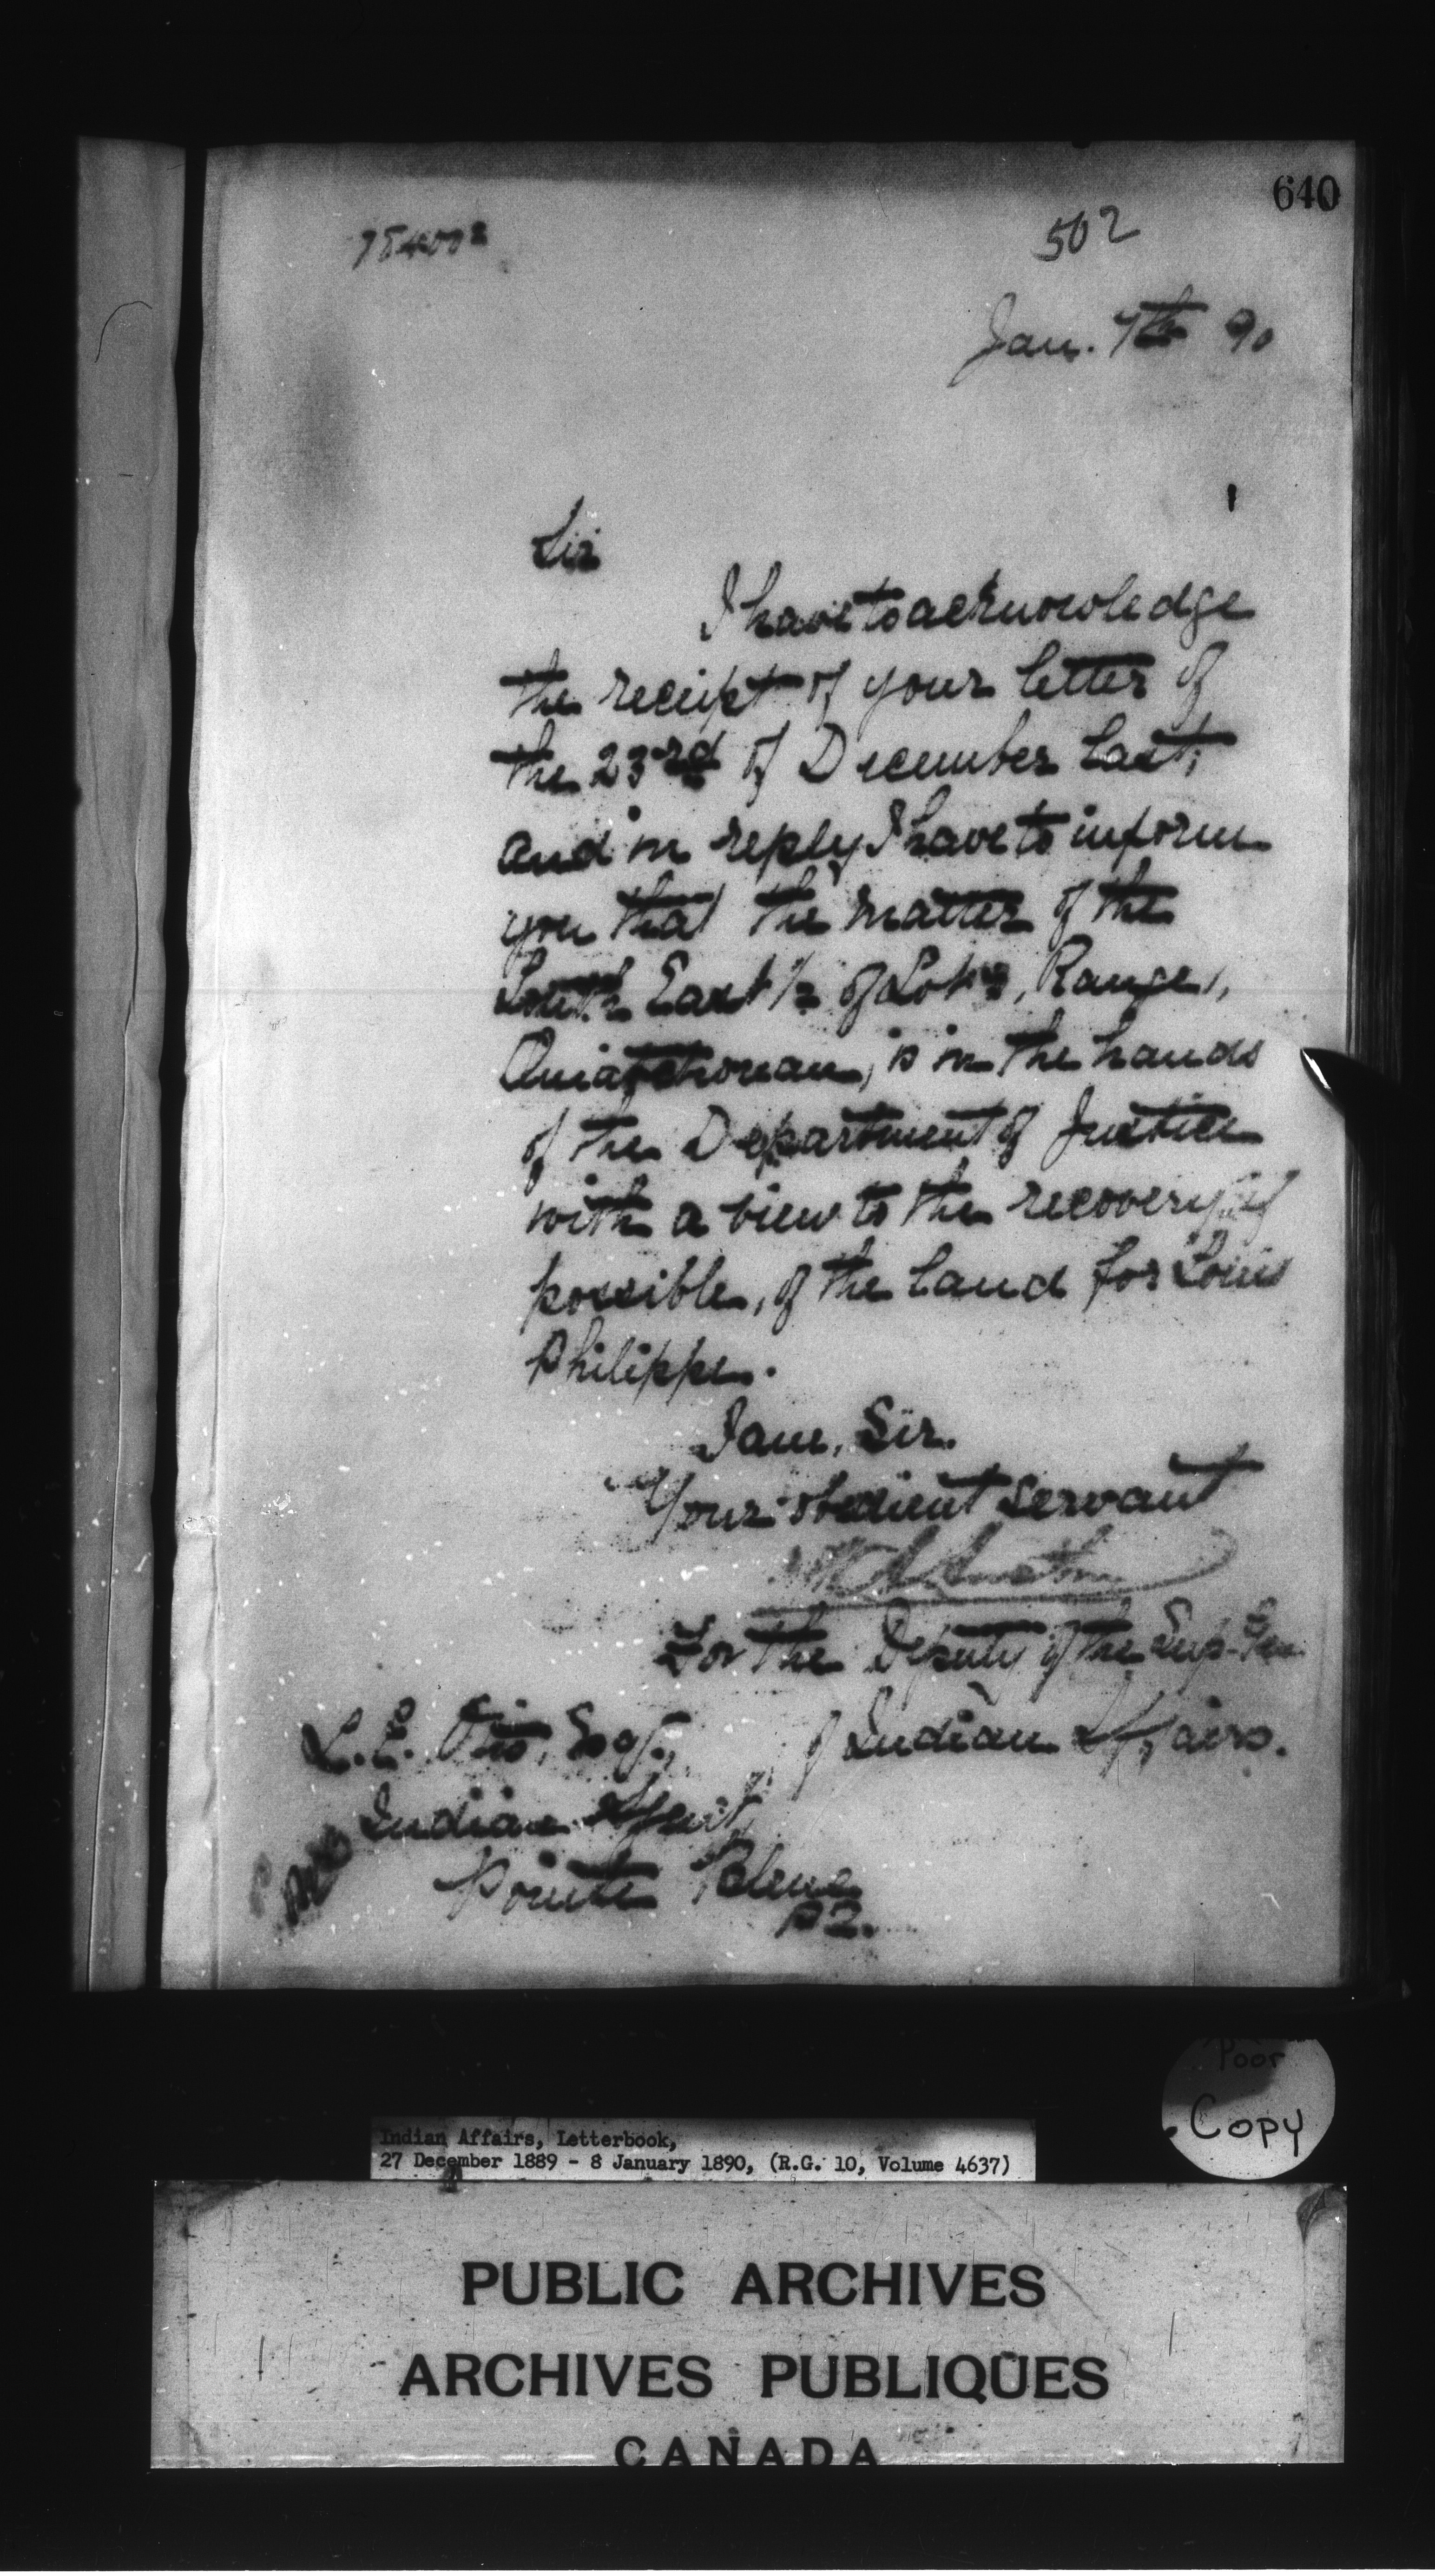 640
502
Jan. 7th 90
Sir
I have to acknowledge
the receipt of your letter of
the 23rd of December last,
and in reply I have to inform
you that the matter of the
South East 1/2 of Lot, Range 1,
Ouiatchouan, is in the hands
of the Department of Justice
with a view to the recovery, if
possible, of the land for Louis
Philippe.
I am, Sir.
Your obedient servant
For the Deputy of the Sup. Gen.
of Indian Affairs.
L. E. Otis, Esq.,
Indian Agent,
Pointe Bleue
P2.
Poor
Copy
Indian Affairs, Letterbook,
27 December 1889 - 8 January 1890, (R.G. 10, Volume 4637)
PUBLIC ARCHIVES
ARCHIVES PUBLIQUES
CANADA